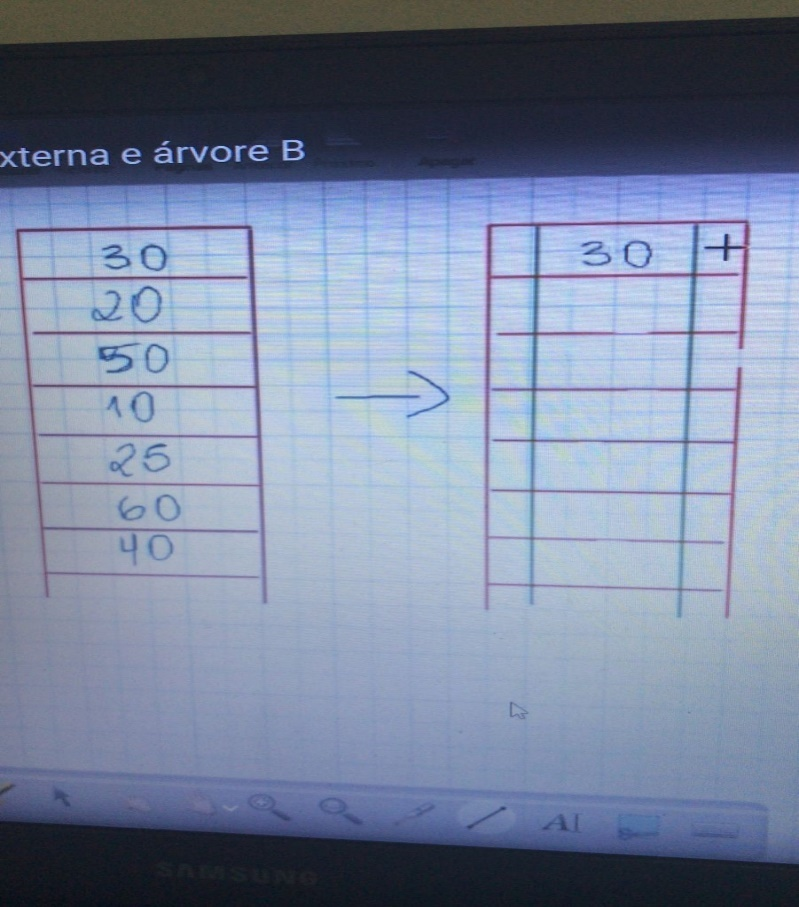 xterna e árvore B
30
20
50
10
25
60
40
30 +
AI
SAMSUNG